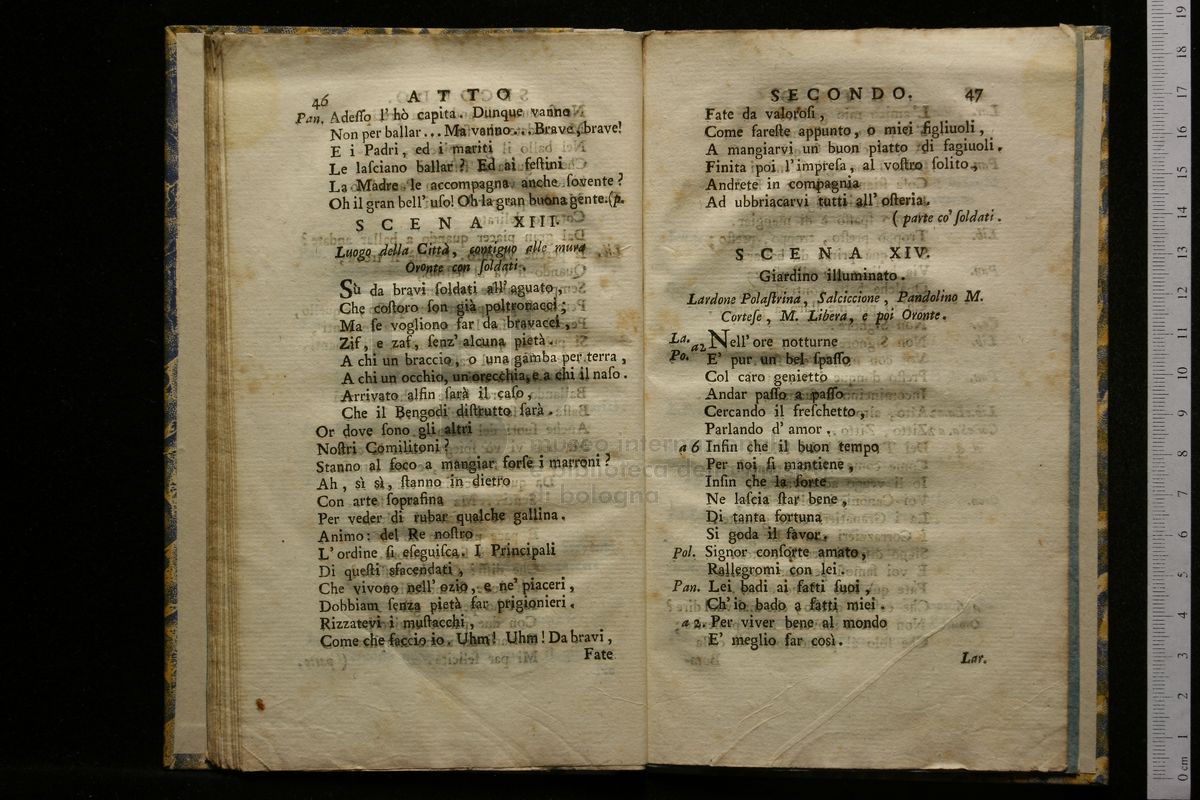 46 ATTO
Pan. Adeſſo l' hò capita. Dunque vanno
Non per ballar... Ma vanno... Brave, brave!
E i Padri, ed i mariti
Le laſciano ballar? Ed ai feſtini
La Madre le accompagna anche ſovente?
Oh il gran bell' uſo! Oh la gran buona gente. (p.
SCENA XIII.
Luogo della Città, contiguo alle mura
Oronte con ſoldati.
Sù da bravi ſoldati all' aguato,
Che coſtoro ſon già poltronacci;
Ma ſe vogliono far da bravacci,
Zif, e zaf, ſenz' alcuna pietà.
A chi un braccio, o una gamba per terra,
A chi un occhio, un orecchia, e a chi il naſo.
Arrivato alfin ſarà il caſo,
Che il Bengodi diſtrutto ſarà.
Or dove ſono gli altri
Noſtri Comilitoni?
Stanno al foco a mangiar forſe i marroni?
Ah, sì sì, ſtanno in dietro
Con arte ſoprafina
Per veder di rubar qualche gallina.
Animo: del Re noſtro
L' ordine ſi eſeguiſca. I Principali
Di queſti sfacendati,
Che vivono nell' ozio, e ne' piaceri,
Dobbiam ſenza pietà far prigionieri.
Rizzatevi i muſtacchi,
Come che faccio io. Uhm! Uhm! Da bravi,
Fate
SECONDO. 47
Fate da valoroſi,
Come fareſte appunto, o miei figliuoli,
A mangiarvi un buon piatto di fagiuoli.
Finita poi l' impreſa, al voſtro ſolito,
Andrete in compagnia
Ad ubbriacarvi tutti all' oſteria.
(parte co' ſoldati.
SCENA XIV.
Giardino illuminato.
Lardone Polaſtrina, Salciccione, Pandolino M.
Corteſe, M. Libera, e poi Oronte.
La. a2 Nell' ore notturne
Po. E' pur un bel ſpaſſo
Col caro genietto
Andar paſſo a paſſo
Cercando il freſchetto,
Parlando d' amor.
a 6 Infin che il buon tempo
Per noi ſi mantiene,
Infin che la ſorte
Ne laſcia ſtar bene,
Di tanta fortuna
Si goda il favor.
Pol. Signor conſorte amato,
Rallegromi con lei.
Pan. Lei badi ai fatti ſuoi,
Ch' io bado a fatti miei.
a 2. Per viver bene al mondo
E' meglio far così.
Lar.
museo internazionale
e biblioteca della musica
di bologna
0 cm 1 2 3 4 5 6 7 8 9 10 11 12 13 14 15 16 17 18 19